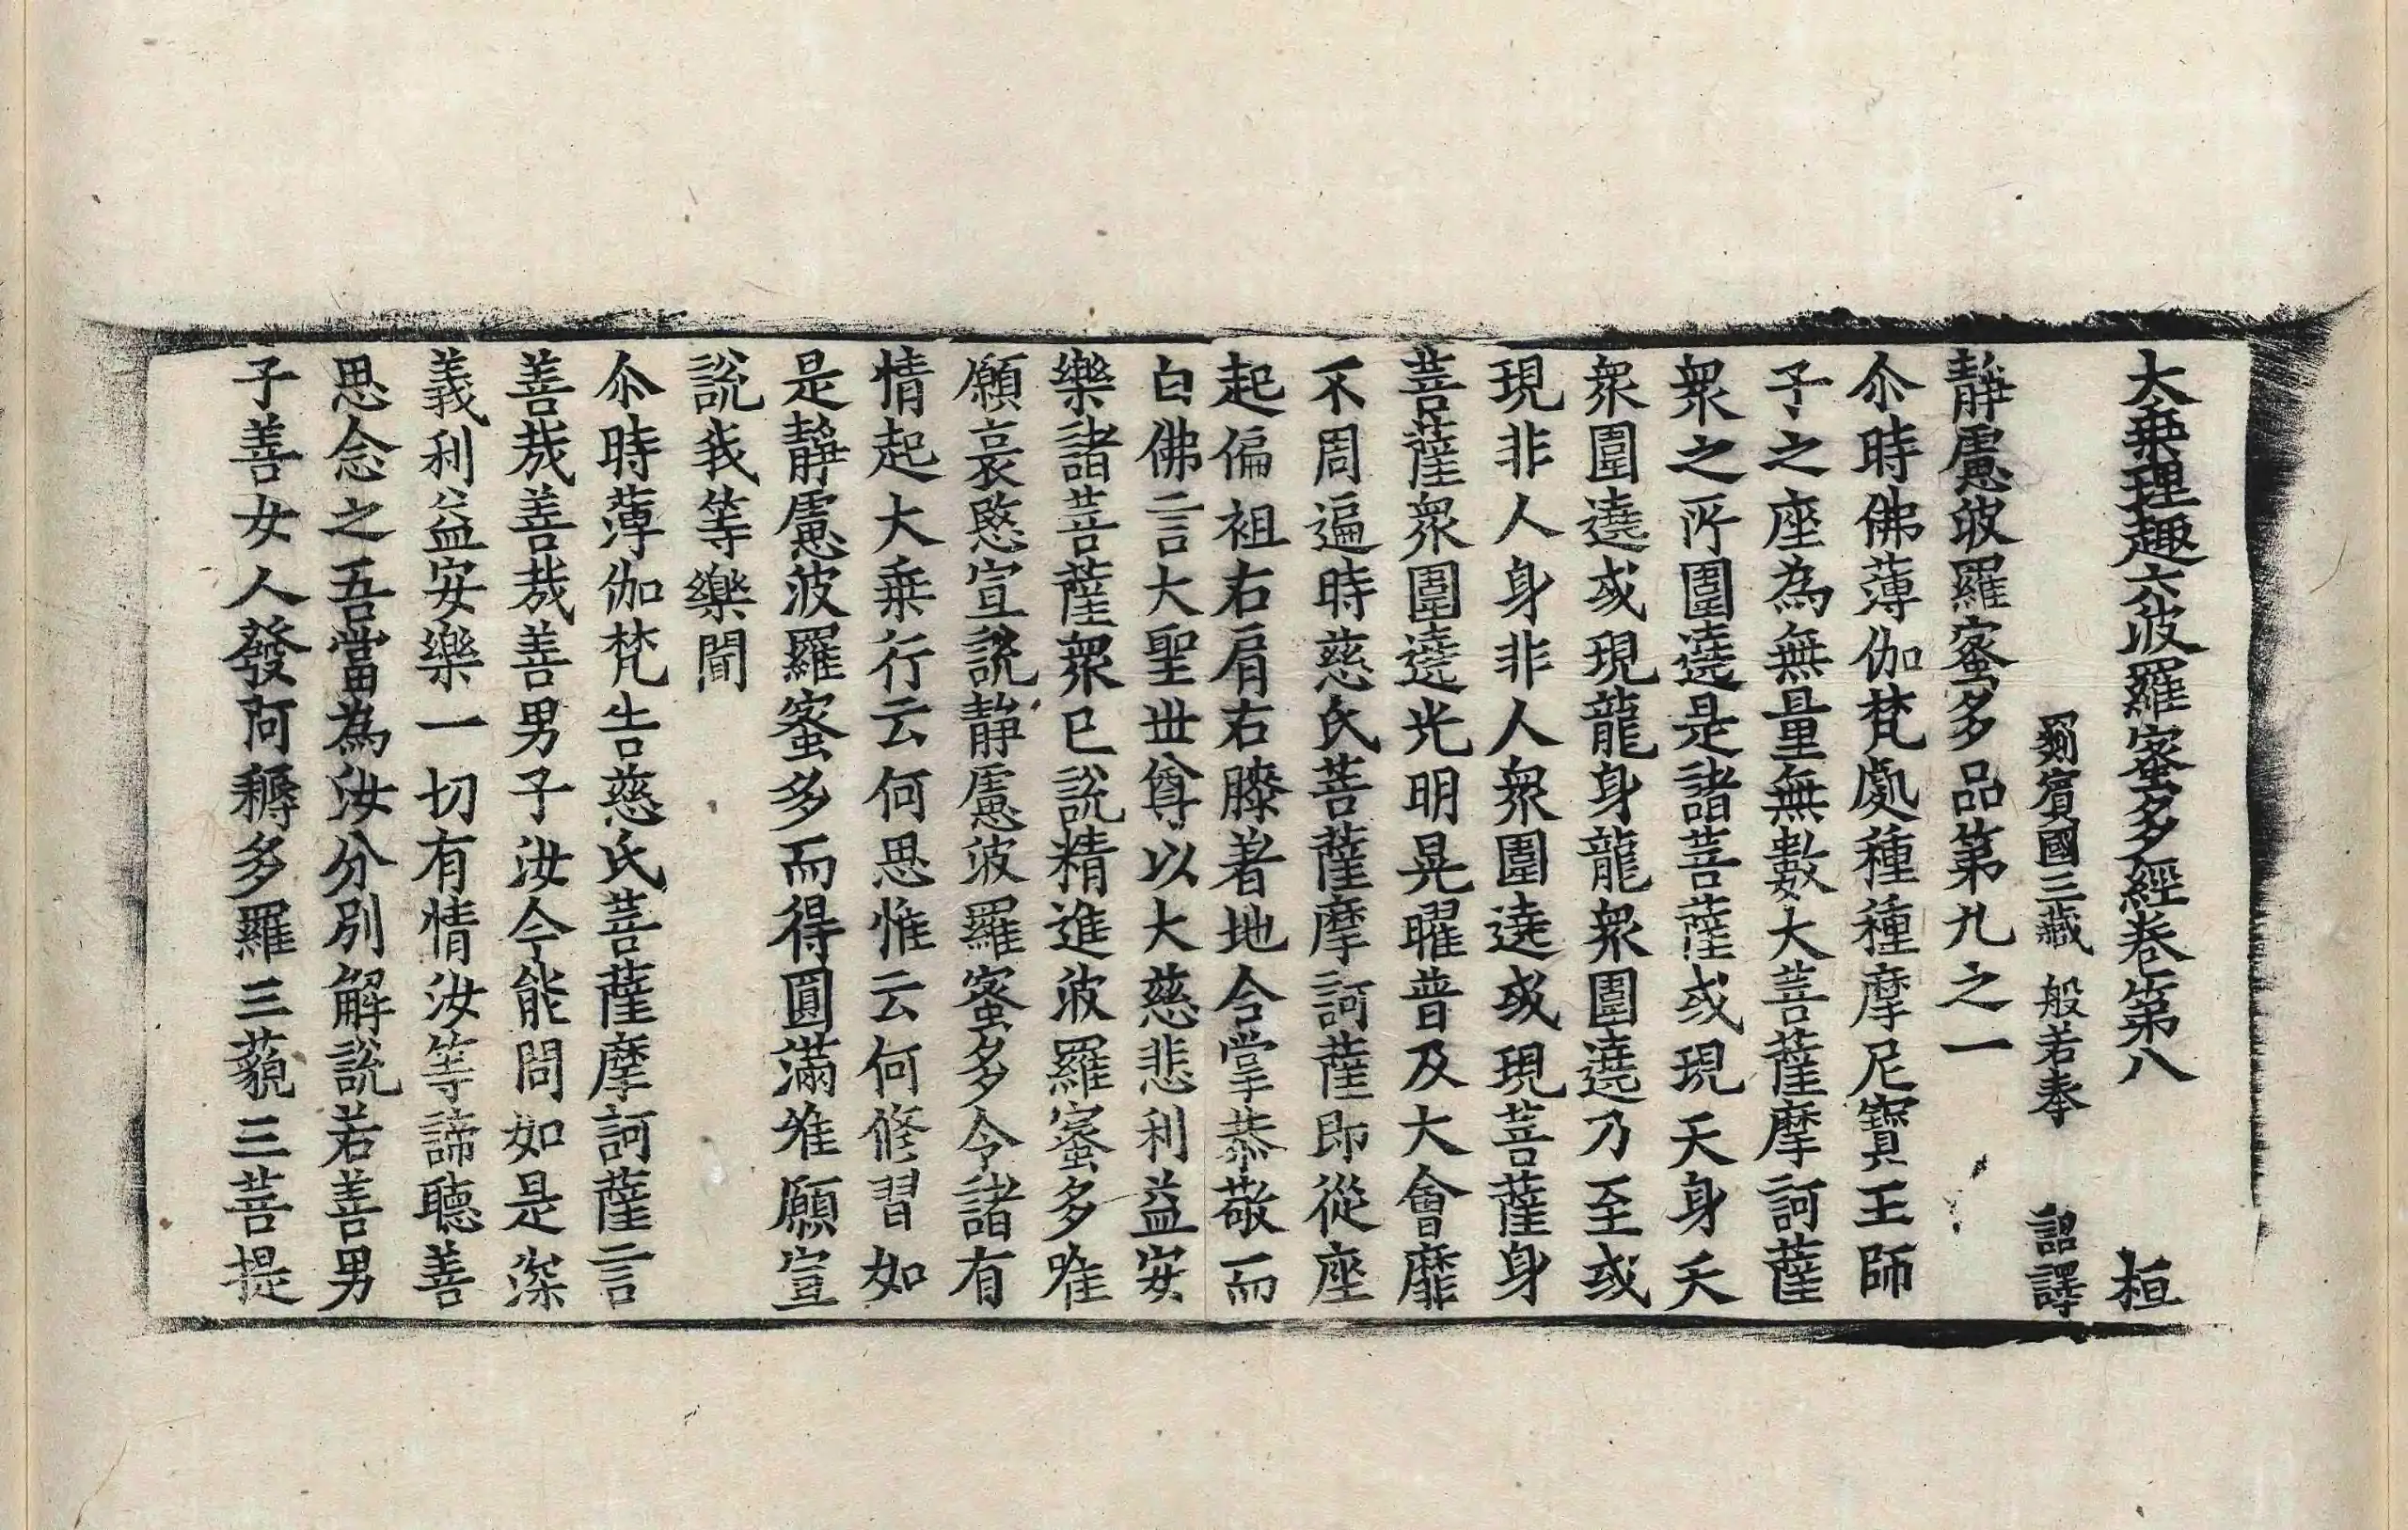 大乗理趣六波羅蜜多經卷第八　桓
罽賓國三藏　般若奉　詔譯
靜慮波羅蜜多品第九之一
尒時佛薄伽梵處種種摩尼寶王師
子之座為無量無數大菩薩摩訶薩
衆之所圍遶是諸菩薩或現天身天
衆圍遶或現龍身龍衆圍遶乃至或
現非人身非人衆圍遶或現菩薩身
菩薩衆圍遶光明晃曜普及大會靡
不周遍時慈氏菩薩摩訶薩即從座
起偏袒右肩右膝著地合掌恭敬而
白佛言大聖世尊以大慈悲利益安
樂諸菩薩衆已說精進波羅蜜多唯
願哀愍宣說靜慮波羅蜜多令諸有
情起大乗行云何思惟云何修習如
是靜慮波羅蜜多而得圓滿唯願宣
說我等樂聞
尒時薄伽梵告慈氏菩薩摩訶薩言
善哉善哉善男子汝今能問如是深
義利益安樂一切有情汝等諦聽善
思念之吾當為汝分別解說若善男
子善女人發阿耨多羅三藐三菩提